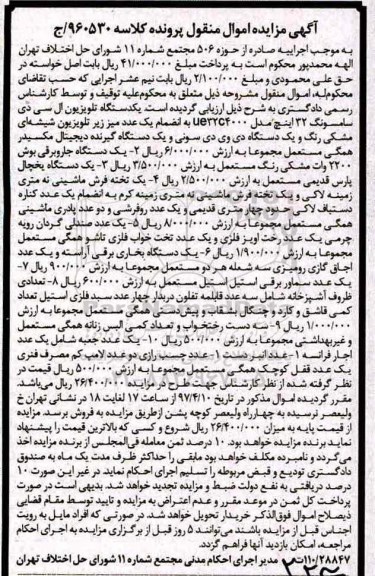 آگهی مزایده اموال منقول پرونده کلاسه ۹۶۰۵۳۰/ج
به موجب اجراییه صادره از حوزه ۵۰۶ مجتمع شماره ۱۱ شورای حل اختلاف تهران
الهه محمدپور محکوم است به پرداخت مبلغ ۴۱/۰۰۰/۰۰۰ ریال بابت اصل خواسته در
حق علی محمودی و مبلغ ۲/۱۰۰/۰۰۰ ریال بابت نیم عشر اجرایی که حسب تقاضای
محکوم‌له، اموال منقول مشروحه ذیل متعلق به محکوم‌علیه توقیف و توسط کارشناس
رسمی دادگستری به شرح ذیل ارزیابی گردیده است. یکدستگاه تلویزیون ال سی دی
سامسونگ ۳۲ اینچ مدل ue۳۲c۴۰۰۰ به انضمام یک عدد میز زیر تلویزیون شیشه‌ای
مشکی رنگ و یک دستگاه دی وی دی سونی و یک دستگاه گیرنده دیجیتال مکسیدر
همگی مستعمل مجموعا به ارزش ۶/۰۰۰/۰۰۰ ریال ۲- یک دستگاه جاروبرقی بوش
۲۲۰۰ وات مشکی رنگ مستعمل به ارزش ۳/۵۰۰/۰۰۰ ریال ۳- یک دستگاه یخچال
پارس قدیمی مستعمل به ارزش ۲/۵۰۰/۰۰۰ ریال ۴- یک تخته فرش ماشینی نه متری
زمینه لاکی و یک تخته فرش ماشینی نه متری زمینه کرم به انضمام یک عدد کناره
دستباف لاکی حدود چهار متری قدیمی و یک عدد روفرشی و دو عدد پادری ماشینی
همگی مستعمل مجموعا به ارزش ۸/۰۰۰/۰۰۰ ریال ۵- یک عدد صندلی گردان رویه
چرمی یک عدد رخت آویز فلزی و یک عدد تخت خواب فلزی تاشو همگی مستعمل
مجموعا به ارزش ۱/۹۰۰/۰۰۰ ریال ۶- یک دستگاه بخاری برقی آراسته و یک عدد
اجاق گازی رومیزی سه شعله هر دو مستعمل مجموعا به ارزش ۹۰۰/۰۰۰ ریال ۷-
یک عدد سماور برقی استیل مستعمل به ارزش ۶۰۰/۰۰۰ ریال ۸- تعدادی
ظروف آشپزخانه شامل سه عدد قابلمه تفلون دربدار چهار عدد سبد فلزی استیل تعداد
کمی قاشق و کارد و چنگال بشقاب و پیش‌دستی همگی مستعمل مجموعا به ارزش
۱/۰۰۰/۰۰۰ ریال ۹- سه دست رختخواب و تعداد کمی البسه زنانه همگی مستعمل
و غیربهداشتی مجموعا به ارزش ۵۰۰/۰۰۰ ریال ۱۰- یک عدد جعبه شامل یک عدد
آچار فرانسه ۱ عدد انبردست ۱ عدد چسب رازی دو عدد لامپ کم مصرف فنری
یک عدد قفل کوچک همگی مستعمل مجموعا به ارزش ۵۰۰/۰۰۰ ریال قیمت در
نظر گرفته شده از نظر کارشناس جهت طرح در مزایده ۲۶/۴۰۰/۰۰۰ ریال می‌باشد.
مقرر گردیده اموال مذکور در تاریخ ۹۷/۴/۱۰ از ساعت ۱۷ لغایت ۱۸ در نشانی تهران خ
ولیعصر نرسیده به چهارراه ولیعصر کوچه پشن ازطریق مزایده به فروش برسد. مزایده
از قیمت پایه به میزان ۲۶/۴۰۰/۰۰۰ ریال شروع و کسی که بالاترین قیمت را پیشنهاد
نماید برنده مزایده خواهد بود. ۱۰ درصد ثمن معامله فی‌المجلس از برنده مزایده اخذ
می‌گردد و نامبرده مکلف خواهد بود مابقی را حداکثر ظرف مدت یک ماه به صندوق
دادگستری تودیع و قبض مربوطه را تسلیم اجرای احکام نماید در غیر این صورت ۱۰
درصد دریافتی به نفع دولت ضبط و مزایده تجدید خواهد شد. بدیهی است در صورت
پرداخت کل ثمن در موعد مقرر و عدم اعتراض به مزایده و تایید توسط مقام قضایی
ذیصلاح اموال فوق‌الذکر خریدار تحویل خواهد شد. در صورتی که افراد مایل به رویت
اجناس قبل از مزایده باشند می‌توانند ۵ روز قبل از برگزاری مزایده به اجرای احکام
مراجعه، امکان بازدید آنها فراهم گردد.
۱۱۰/۲۸۸۴۷/ت مدیر اجرای احکام مدنی مجتمع شماره ۱۱ شورای حل اختلاف تهران